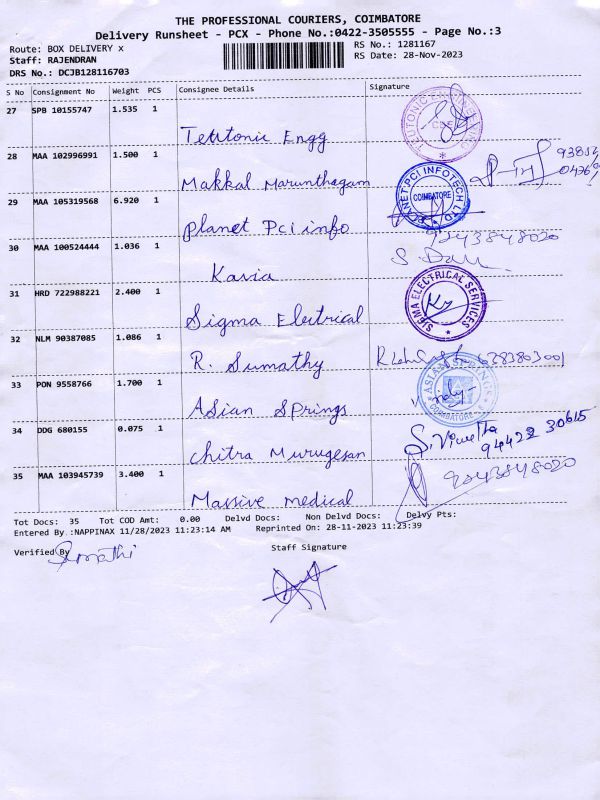 THE PROFESSIONAL COURIERS, COIMBATORE
Delivery Runsheet - PCX - Phone No.:0422-3505555 - Page No.:3
Route: BOX DELIVERY x
RS No.: 1281167
Staff: RAJENDRAN
RS Date: 28-Nov-2023
DRS No.: DCJB128116703
S No Consignment No Weight PCS Consignee Details Signature
27 SPB 10155747 1.535 1
TEUTONIC ENGINEERING
Teutonic Engg
28 MAA 102996991 1.500 1
Makkal Marunthagam
29 MAA 105319568 6.920 1
PLANET PCI INFOTECH LTD
COIMBATORE
Planet Pci info
30 MAA 100524444 1.036 1
9843848020
Kavia
31 HRD 722988221 2.400 1
SIGMA ELECTRICAL SERVICES
Sigma Electrical
32 NLM 90387085 1.086 1
R. Sumathy
33 PON 9558766 1.700 1
ASIAN SPRINGS
COIMBATORE
Asian Springs
34 DDG 680155 0.075 1
94422 30615
Chitra Murugesan
35 MAA 103945739 3.400 1
9843848020
Massive medical
Tot Docs: 35 Tot COD Amt: 0.00 Delvd Docs: Non Delvd Docs: Delvy Pts:
Entered By :NAPPINAX 11/28/2023 11:23:14 AM Reprinted On: 28-11-2023 11:23:39
Verified By
Staff Signature